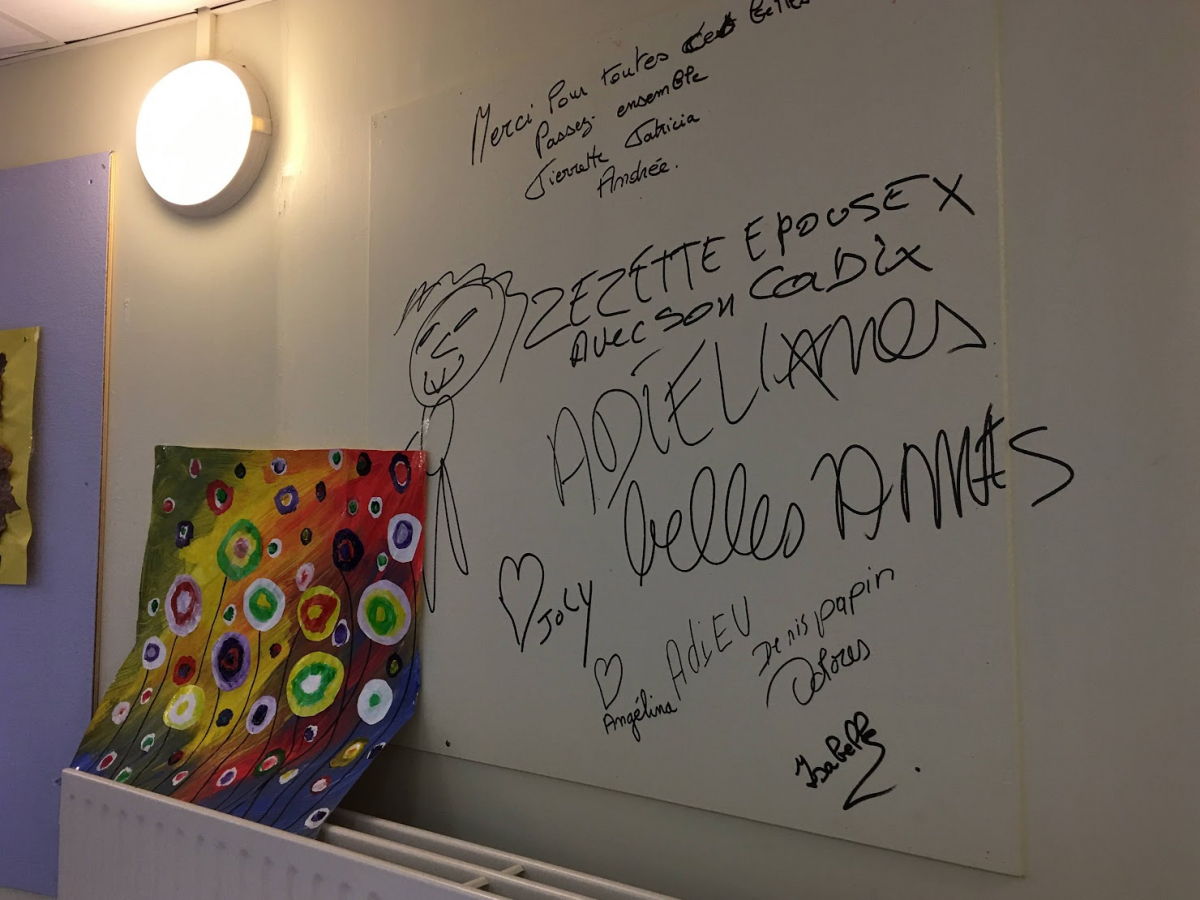 Merci Pour toutes ces belles
Passez ensemble
Pierrette Patricia
Andrée.
ZEZETTE EPOUSE X
AVEC SON CADIX
ADIELIANES
belles DAMES
JOCY
ADIEU
Angélina
Denis papin
Dolores
Isabelle